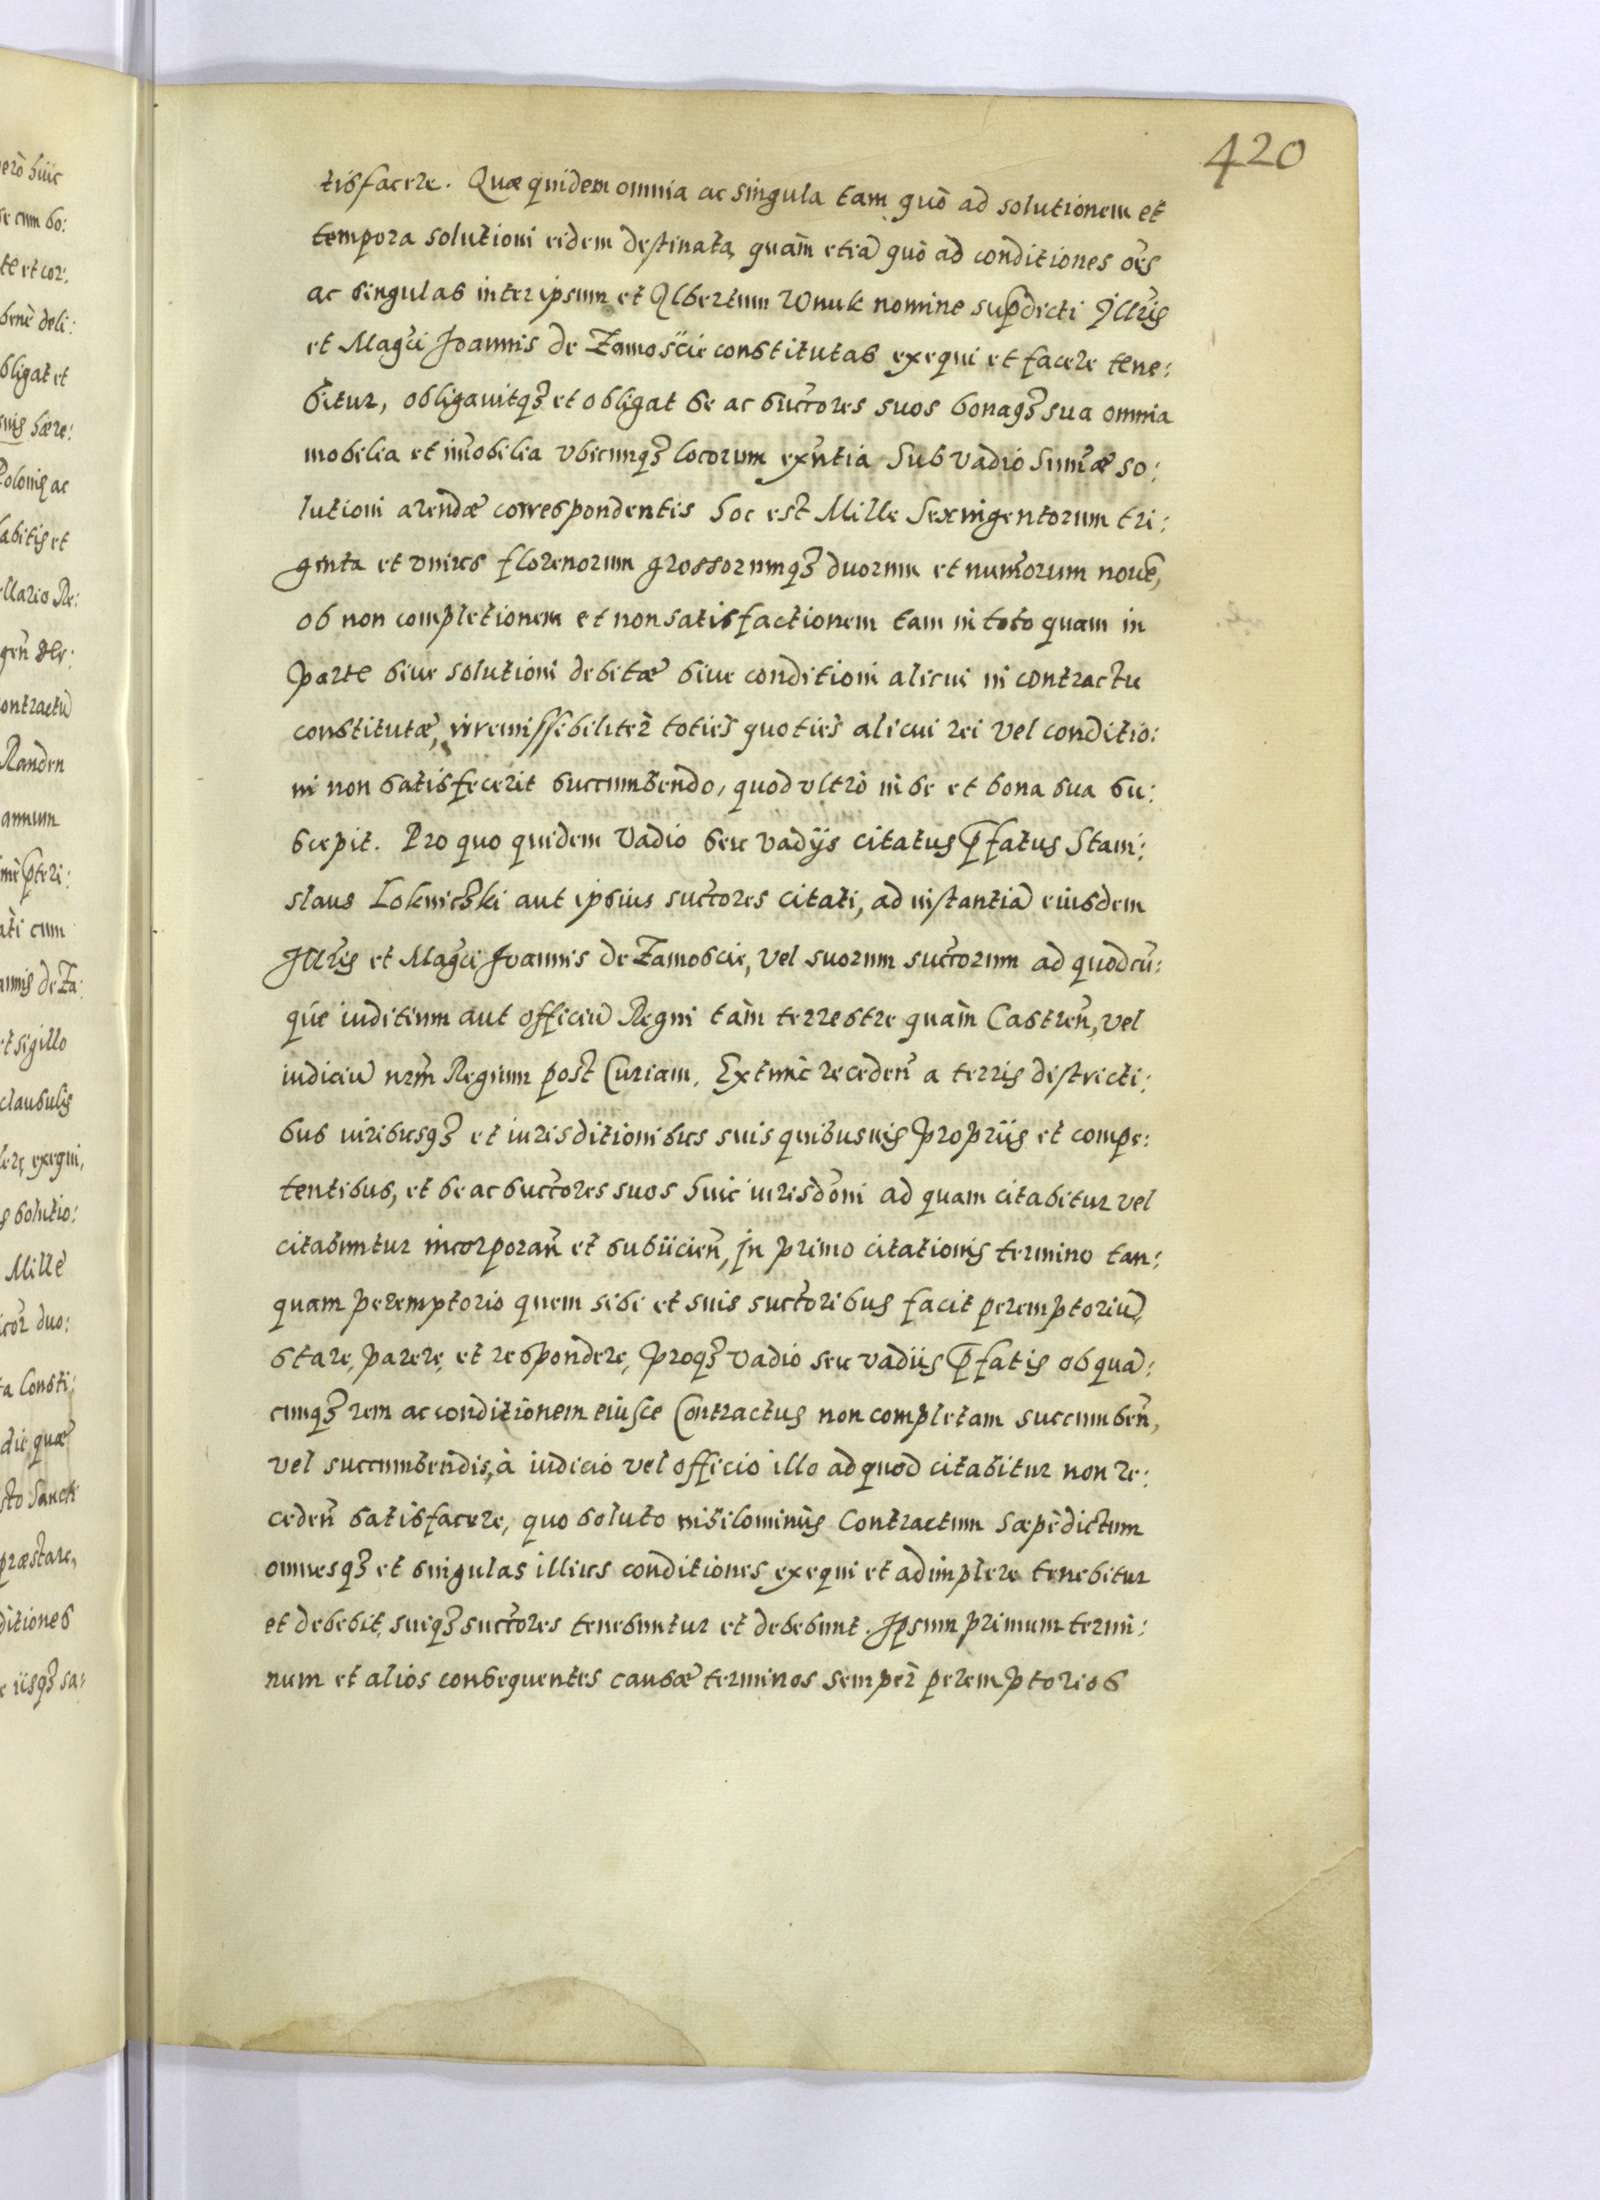 420
tisfacere. Quæ quidem omnia ac singula tam quò ad solutionem et
tempora solutioni eidem destinata, quàm etiã quò ad conditiones oẽs
ac singulas inter ipsum et Albertum Wnuk nomine sup̃dicti Illr̃is
et Mag̃ci Joannis de Zamoscie constitutas exequi et facere tene:
bitur, obligauitq₃ et obligat se ac succ̃ores suos bonaq₃ sua omnia
mobilia et im̃obilia vbicunq₃ locorum exñtia sub vadio sum̃æ so:
lutioni arendæ correspondentis hoc est Mille Sexingentorum tri:
ginta et vnius florenorum grossorumq₃ duorum et num̃orum nouẽ,
ob non completionem et non satisfactionem tam in toto quam in
parte siue solutioni debitæ siue conditioni alicui in contractu
constitutæ, irremissibiliter toties quoties alicui rei vel conditio:
ni non satisfecerit succumbendo, quod vltrò in se et bona sua su:
scepit. Pro quo quidem vadio seu vadijs citatus p̃fatus Stani:
slaus Loknicski aut ipsius succ̃ores citati, ad instantiã eiusdem
Illr̃is et Mag̃ci Joannis de Zamoscie, vel suorum succ̃orum ad quodcũ:
qúe iuditium aut officiũ Regni tàm terrestre quàm Castreñ, vel
iudiciũ nr̃m Regium post Curiam. Extunc recedeñ a terris districti:
bus iuribusq₃ et iurisditionibus suis quibusuis proprijs et compe:
tentibus, et se ac succ̃ores suos huic iurisdõni ad quam citabitur vel
citabuntur incorporañ et subijcieñ, in primo citationis termino tan:
quam peremptorio quem sibi et suis succ̃oribus facit peremptoriũ,
stare, parere, et respondere, proq₃ vadio seu vadijs p̃fatis ob quã:
cunq₃ rem ac conditionem eiusce Contractus non completam succumbeñ,
vel succumbendis, à iudicio vel officio illo ad quod citabitur non re:
cedeñ satisfacere, quo soluto nihilominùs Contractum sæpèdictum
omnesq₃ et singulas illius conditiones exequi et adimplere tenebitur
et debebit, suiq₃ succ̃ores tenebuntur et debebunt. Ipsum primum termi:
num et alios consequentes causæ terminos semper peremptorios